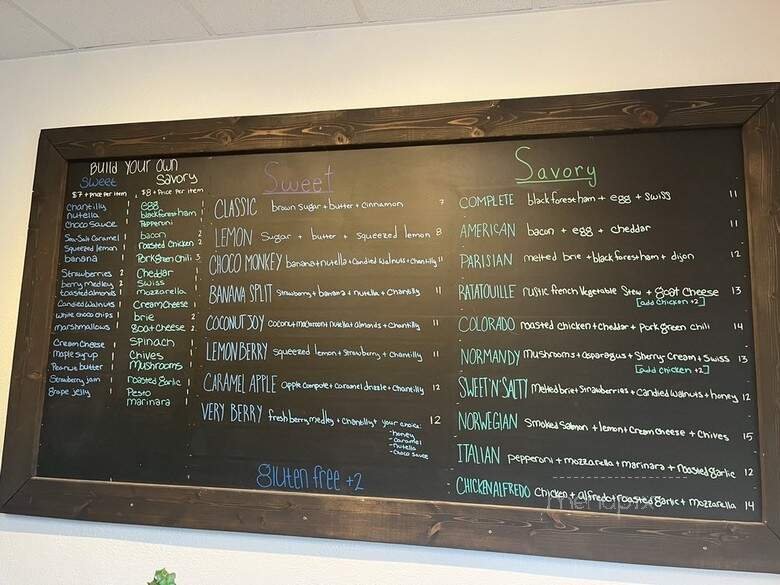 Build Your Own
Sweet
$7 + price per item
chantilly 1
nutella 1
choco sauce 1
Sea-Salt Caramel 1
squeezed lemon 1
banana 1
Strawberries 2
berry medley 2
toasted almonds 1
Candied walnuts 1
white choco chips 1
marshmallows 1
Cream Cheese 1
maple syrup 1
Peanut butter 1
Strawberry jam 1
grape jelly 1
Savory
$8 + Price per item
egg 2
black forest ham 2
Pepperoni
bacon 2
roasted chicken 2
Pork green Chili 3
Cheddar 1
Swiss 1
mozzarella 1
Cream Cheese 1
brie 2
goat cheese 2
Spinach 1
Chives 1
Mushrooms 1
roasted garlic 1
Pesto 1
marinara 1
Sweet
CLASSIC brown sugar + butter + cinnamon 7
LEMON Sugar + butter + squeezed lemon 8
CHOCO MONKEY banana + nutella + Candied walnuts + Chantilly 11
BANANA SPLIT Strawberry + banana + nutella + Chantilly 11
COCONUT JOY coconut macaroon + nutella + almonds + Chantilly 11
LEMONBERRY squeezed lemon + strawberry + chantilly 11
CARAMEL APPLE apple compote + caramel drizzle + chantilly 12
VERY BERRY fresh berry medley + chantilly + your choice: 12
- honey
- caramel
- nutella
- choco sauce
gluten free +2
Savory
COMPLETE black forest ham + egg + Swiss 11
AMERICAN bacon + egg + cheddar 11
PARISIAN melted brie + black forest ham + dijon 12
RATATOUILLE rustic french Vegetable Stew + goat cheese 13
[add chicken +2]
COLORADO roasted chicken + cheddar + Pork green chili 14
NORMANDY Mushrooms + asparagus + Sherry Cream + Swiss 13
[add chicken +2]
SWEET'N'SALTY Melted brie + Strawberries + Candied walnuts + honey 12
NORWEGIAN Smoked Salmon + lemon Cream Cheese + Chives 15
ITALIAN pepperoni + mozzarella + marinara + roasted garlic 12
CHICKEN ALFREDO Chicken + alfredo + roasted garlic + mozzarella 14
menupix